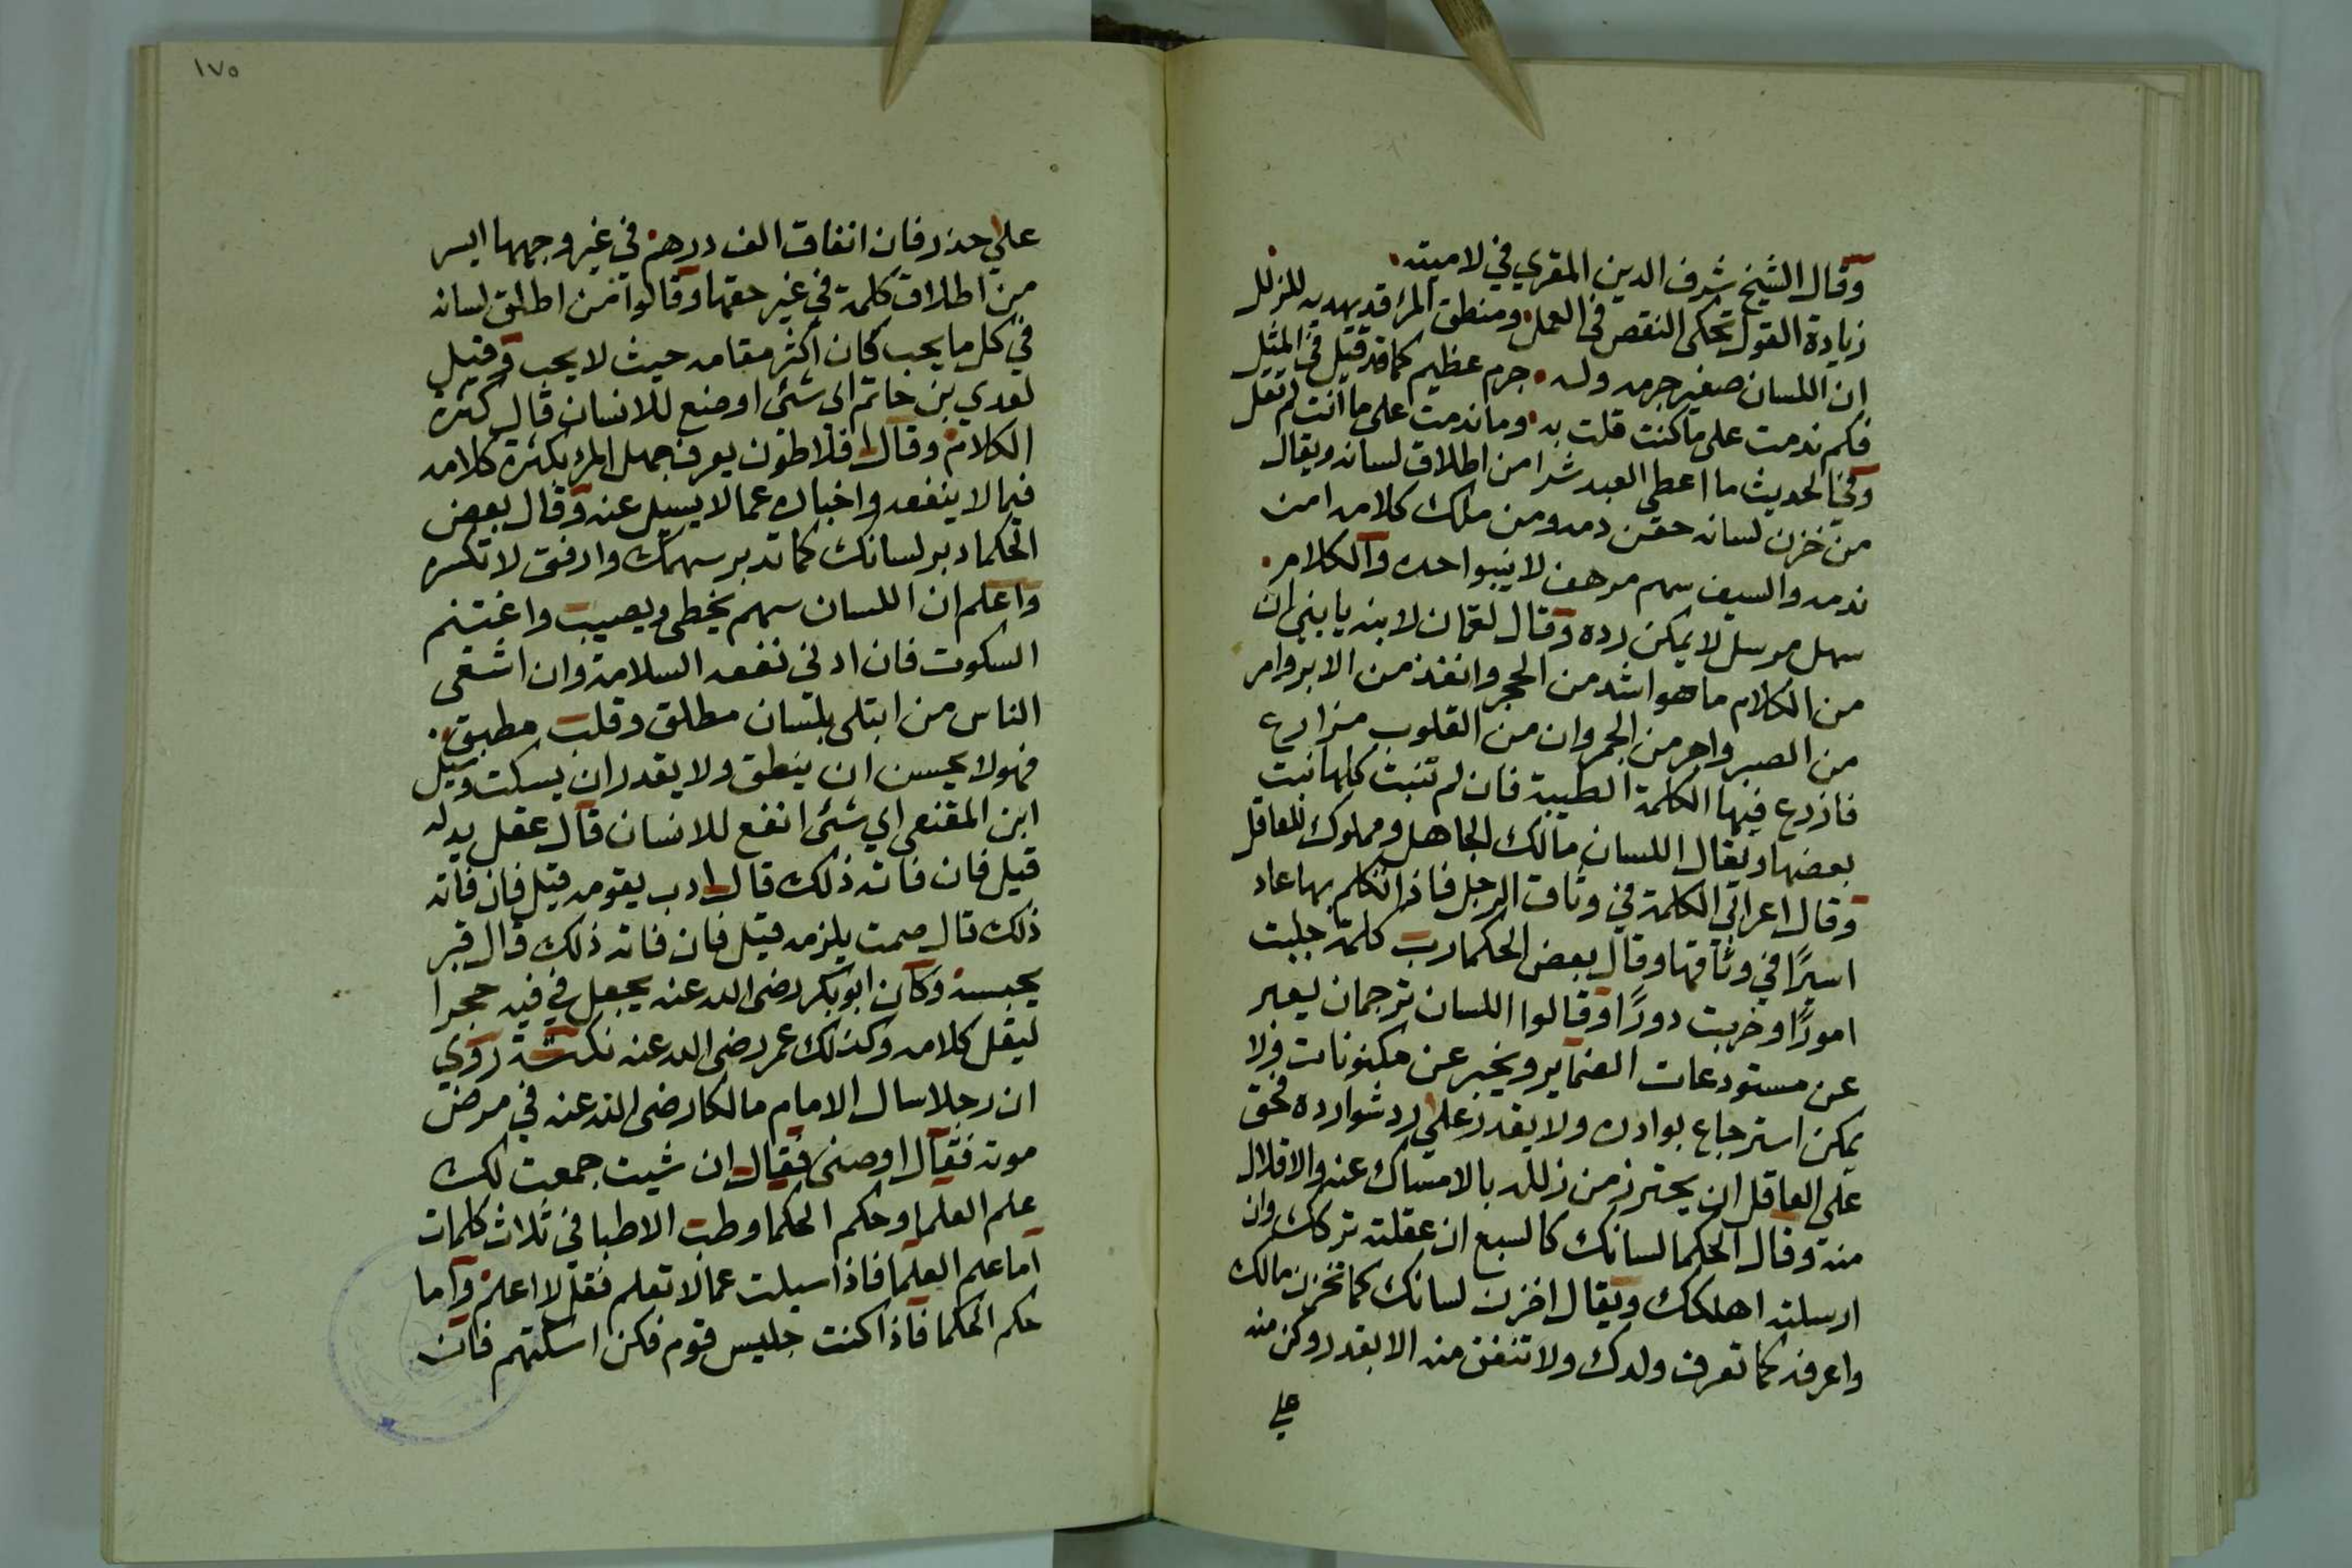 وقال الشيخ شرف الدين المقري في لاميته
زيادة القول تحكى النقص في العمل ومنطق المرء قد يهديه للزلل
ان اللسان صغير جرمه وله جرم عظيم كما قد قيل في المثل
فكم ندمت على ما كنت قلت به وما ندمت على ما انت لم تقل
وفي الحديث ما اعطي العبد شرا من اطلاق لسانه ويقال
من خزن لسانه حقن دمه ومن ملك كلامه امن
ندمه والسيف سهم مرهف لا ينبوا حده والكلام
سهل مرسل لا يمكن رده وقال لقمان لابنه يا بني ان
من الكلام ما هو اشد من الحجر وانفذ من الابر وامر
من الصبر واحر من الجمر وان من القلوب مزارع
فازرع فيها الكلمة الطيبة فان لم تنبت كلها نبت
بعضها ويقال اللسان مالك الجاهل ومملوك للعاقل
وقال اعرابي الكلمة في وثاق الرجل فاذا تكلم بها عاد
اسيرًا في وثاقها وقال بعض الحكما رب كلمة جلبت
امورًا وخربت دورًا وقالوا اللسان ترجمان يعبر
عن مستودعات الضماير ويخبر عن مكنونات ولا
يمكن استرجاع بوادره ولا يقدر علي رد شوارده فحق
على العاقل ان يحترز من زلله بالامساك عنه والاقلال
منه وقال الحكما لسانك كالسبع ان عقلته تركك وان
ارسلته اهلكك ويقال اخزن لسانك كما تخزن مالك
واعرفه كما تعرف ولدك ولا تنفق منه الا بقدر وكن منه
علي
١٧٥
علي حذر فان انفاق الف درهم في غير وجهها ايسر
من اطلاق كلمة في غير حقها وقالوا من اطلق لسانه
في كل ما يحب كان أكثر مقامه حيث لا يحب وقيل
لعدي بن حاتم اى شئ اوضع للانسان قال كثرة
الكلام وقال افلاطون يعرف جهل المرء بكثرة كلامه
فيما لا ينفعه واخباره عما لا يسيل عنه وقال بعض
الحكما دبر لسانك كما تدبر سهمك وارفق لا تكسره
واعلم ان اللسان سهم يخطى ويصيب واغتنم
السكوت فان ادني نفعه السلامة وان اشقى
الناس من ابتلى بلسان مطلق وقلب مطبق
فهو لا يحسن ان ينطق ولا يقدر ان يسكت وسيل
ابن المقنع اي شئ انفع للانسان قال عقل يدله
قيل فان فاته ذلك قال ادب يقومه قيل فان فاته
ذلك قال صمت يلزمه قيل فان فاته ذلك قال قبر
يحبسه وكان ابو بكر رضى الله عنه يجعل في فيه حجرا
ليقل كلامه وكذلك عمر رضى الله عنه نكتة روي
ان رجلا سال الامام مالكا رضى الله عنه في مرض
موته فقال اوصنى فقال ان شيت جمعت لك
علم العلما وحكم الحكما وطب الاطبا في ثلاث كلمات
اما علم العلما فاذا سيلت عما لا تعلم فقل لا اعلم واما
حكم الحكما فاذا كنت جليس قوم فكن اسكتهم فان